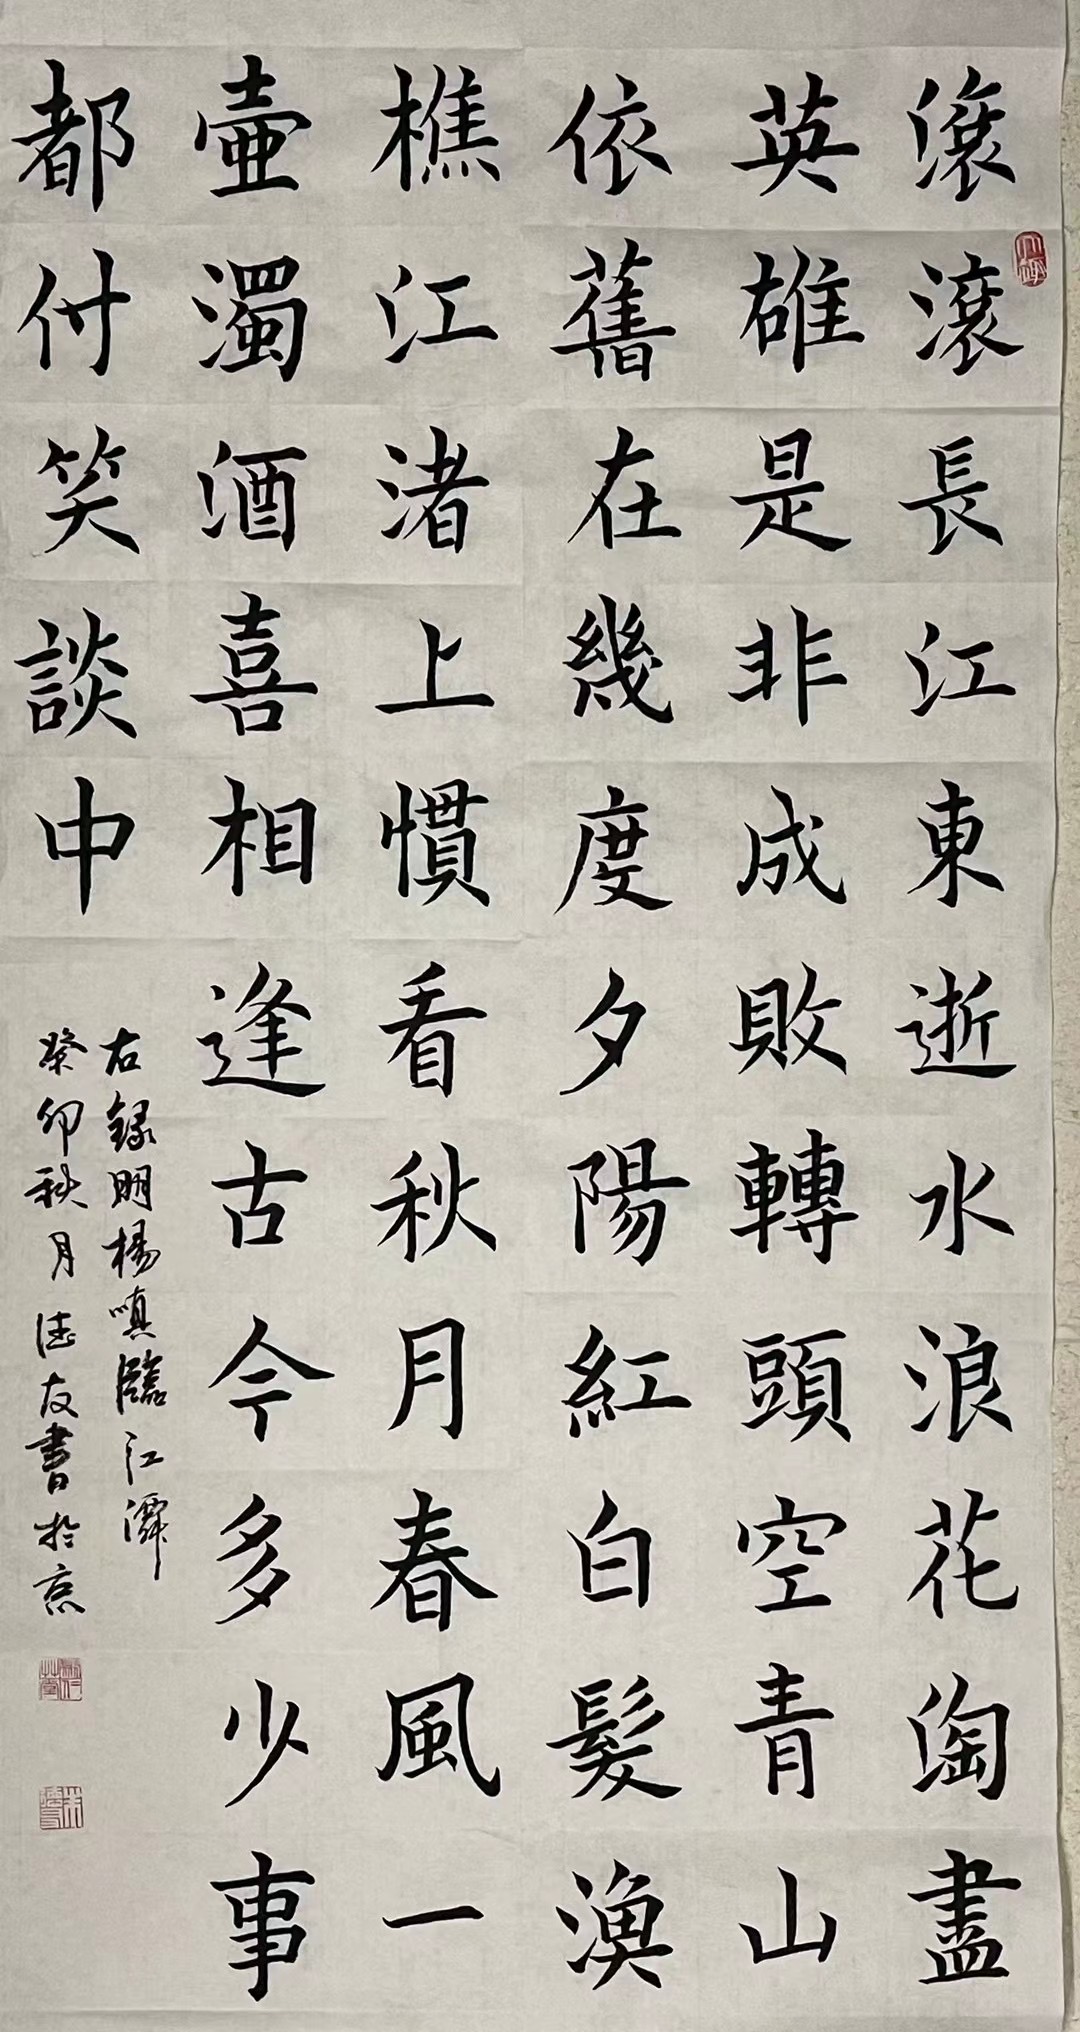 滾滾長江東逝水浪花淘盡
英雄是非成敗轉頭空青山
依舊在幾度夕陽紅白髮漁
樵江渚上慣看秋月春風一
壷濁酒喜相逢古今多少事
都付笑談中
右録明楊嗔臨江濢
癸卯秋月德友書於京